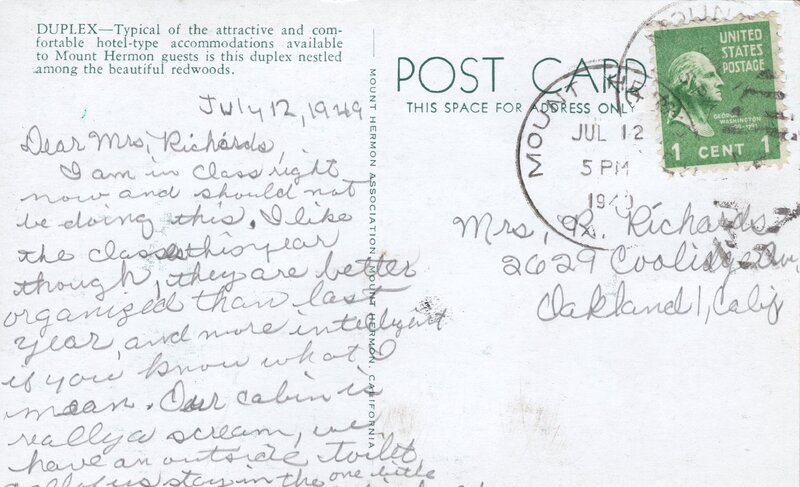 DUPLEX—Typical of the attractive and com-
fortable hotel-type accommodations available
to Mount Hermon guests is this duplex nestled
among the beautiful redwoods.
July 12, 1949
Dear Mrs, Richards,
I am in class right
now and should not
be doing this. I like
the classes this year
though, they are better
organized than last
year, and more inteligent
if you know what I
mean. Our cabin is
really a scream, we
have an outside toilet,
all of us stay in the one little
MOUNT HERMON ASSOCIATION, MOUNT HERMON, CALIFORNIA
POST CARD
THIS SPACE FOR ADDRESS ONLY
MOUNT
JUL 12
5 PM
1949
UNITED
STATES
POSTAGE
GEORGE
WASHINGTON
1 CENT 1
Mrs, R. Richards
2629 Coolidge Av,
Oakland 1, Calif